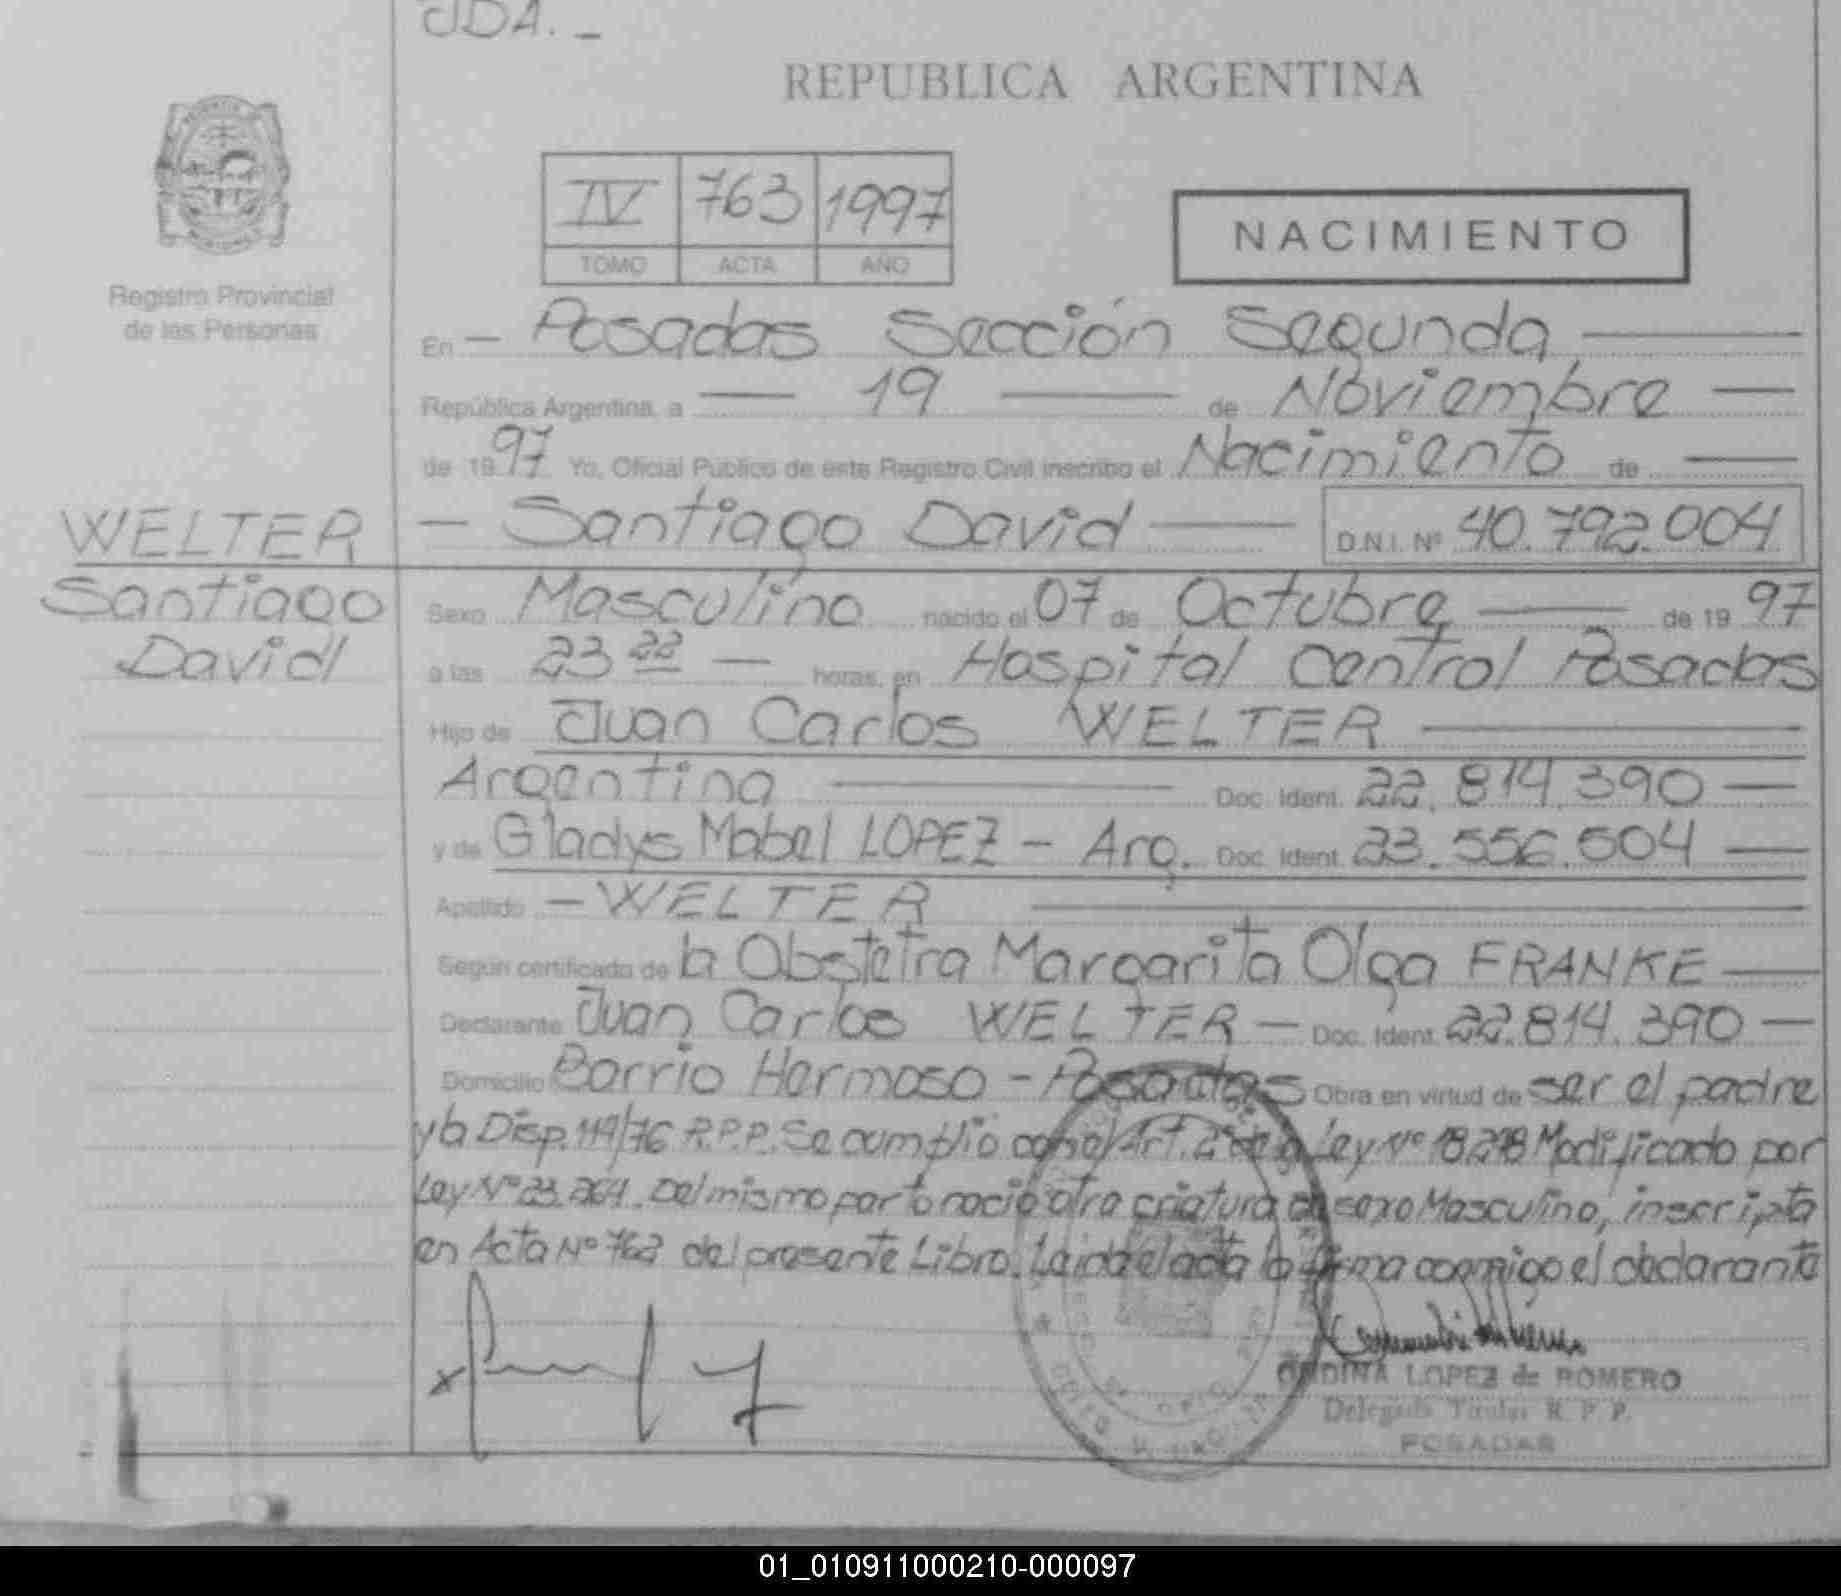 JDA. _
REPUBLICA ARGENTINA
IV 763 1997
TOMO ACTA AÑO
NACIMIENTO
Registro Provincial
de las Personas
En — Posadas Sección Segunda
República Argentina, a — 19 — de Noviembre —
de 1997 Yo, Oficial Público de este Registro Civil inscribo el Nacimiento de —
WELTER
Santiago
David
— Santiago David — D.N.I. Nº 40.792.004
Sexo Masculino nacido el 07 de Octubre — de 1997
a las 23 22 — horas, en Hospital Central Posadas
Hijo de Juan Carlos WELTER —
Argentina — Doc. Ident. 22.814.390 —
y de Gladys Mabel LOPEZ — Arg. Doc. Ident. 23.556.504 —
Apellido — WELTER —
Según certificado de la Obstetra Margarita Olga FRANKE —
Declarante Juan Carlos WELTER — Doc. Ident. 22.814.390 —
Domicilio Barrio Hermoso - Posadas Obra en virtud de ser el padre
y la Disp. 119/76 R.P.P. Se cumplio con el Art. 2º de la Ley Nº 18.248 Modificado por
Ley Nº 23.264. Del mismo parto nació otra criatura de sexo Masculino, inscripta
en Acta Nº 762 del presente Libro. Leida el acta la firma conmigo el declarante
ONDINA LOPEZ de ROMERO
Delegada Titular R.P.P.
POSADAS
01_010911000210-000097